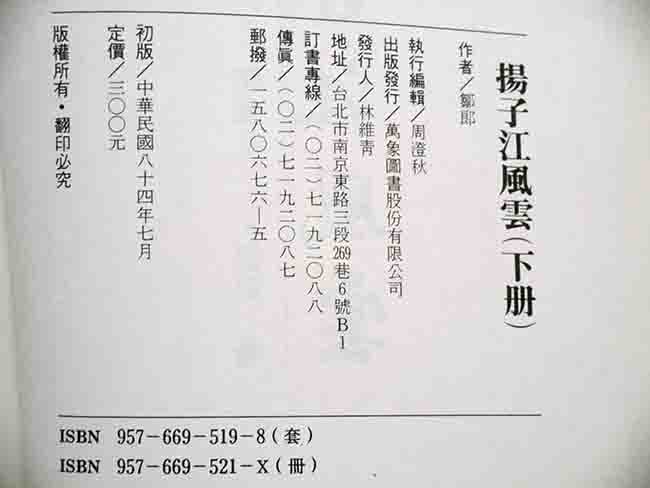 揚子江風雲(下册)
作者/鄒郎
執行編輯/周澄秋
出版發行/萬象圖書股份有限公司
發行人/林維青
地址/台北市南京東路三段269巷6號B1
訂書專線/(〇二)七一九二〇八八
傳眞/(〇二)七一九二〇八七
郵撥/一五八〇六七六—五
初版/中華民國八十四年七月
定價/三〇〇元
版權所有•翻印必究
ISBN 957-669-519-8(套)
ISBN 957-669-521-X(冊)